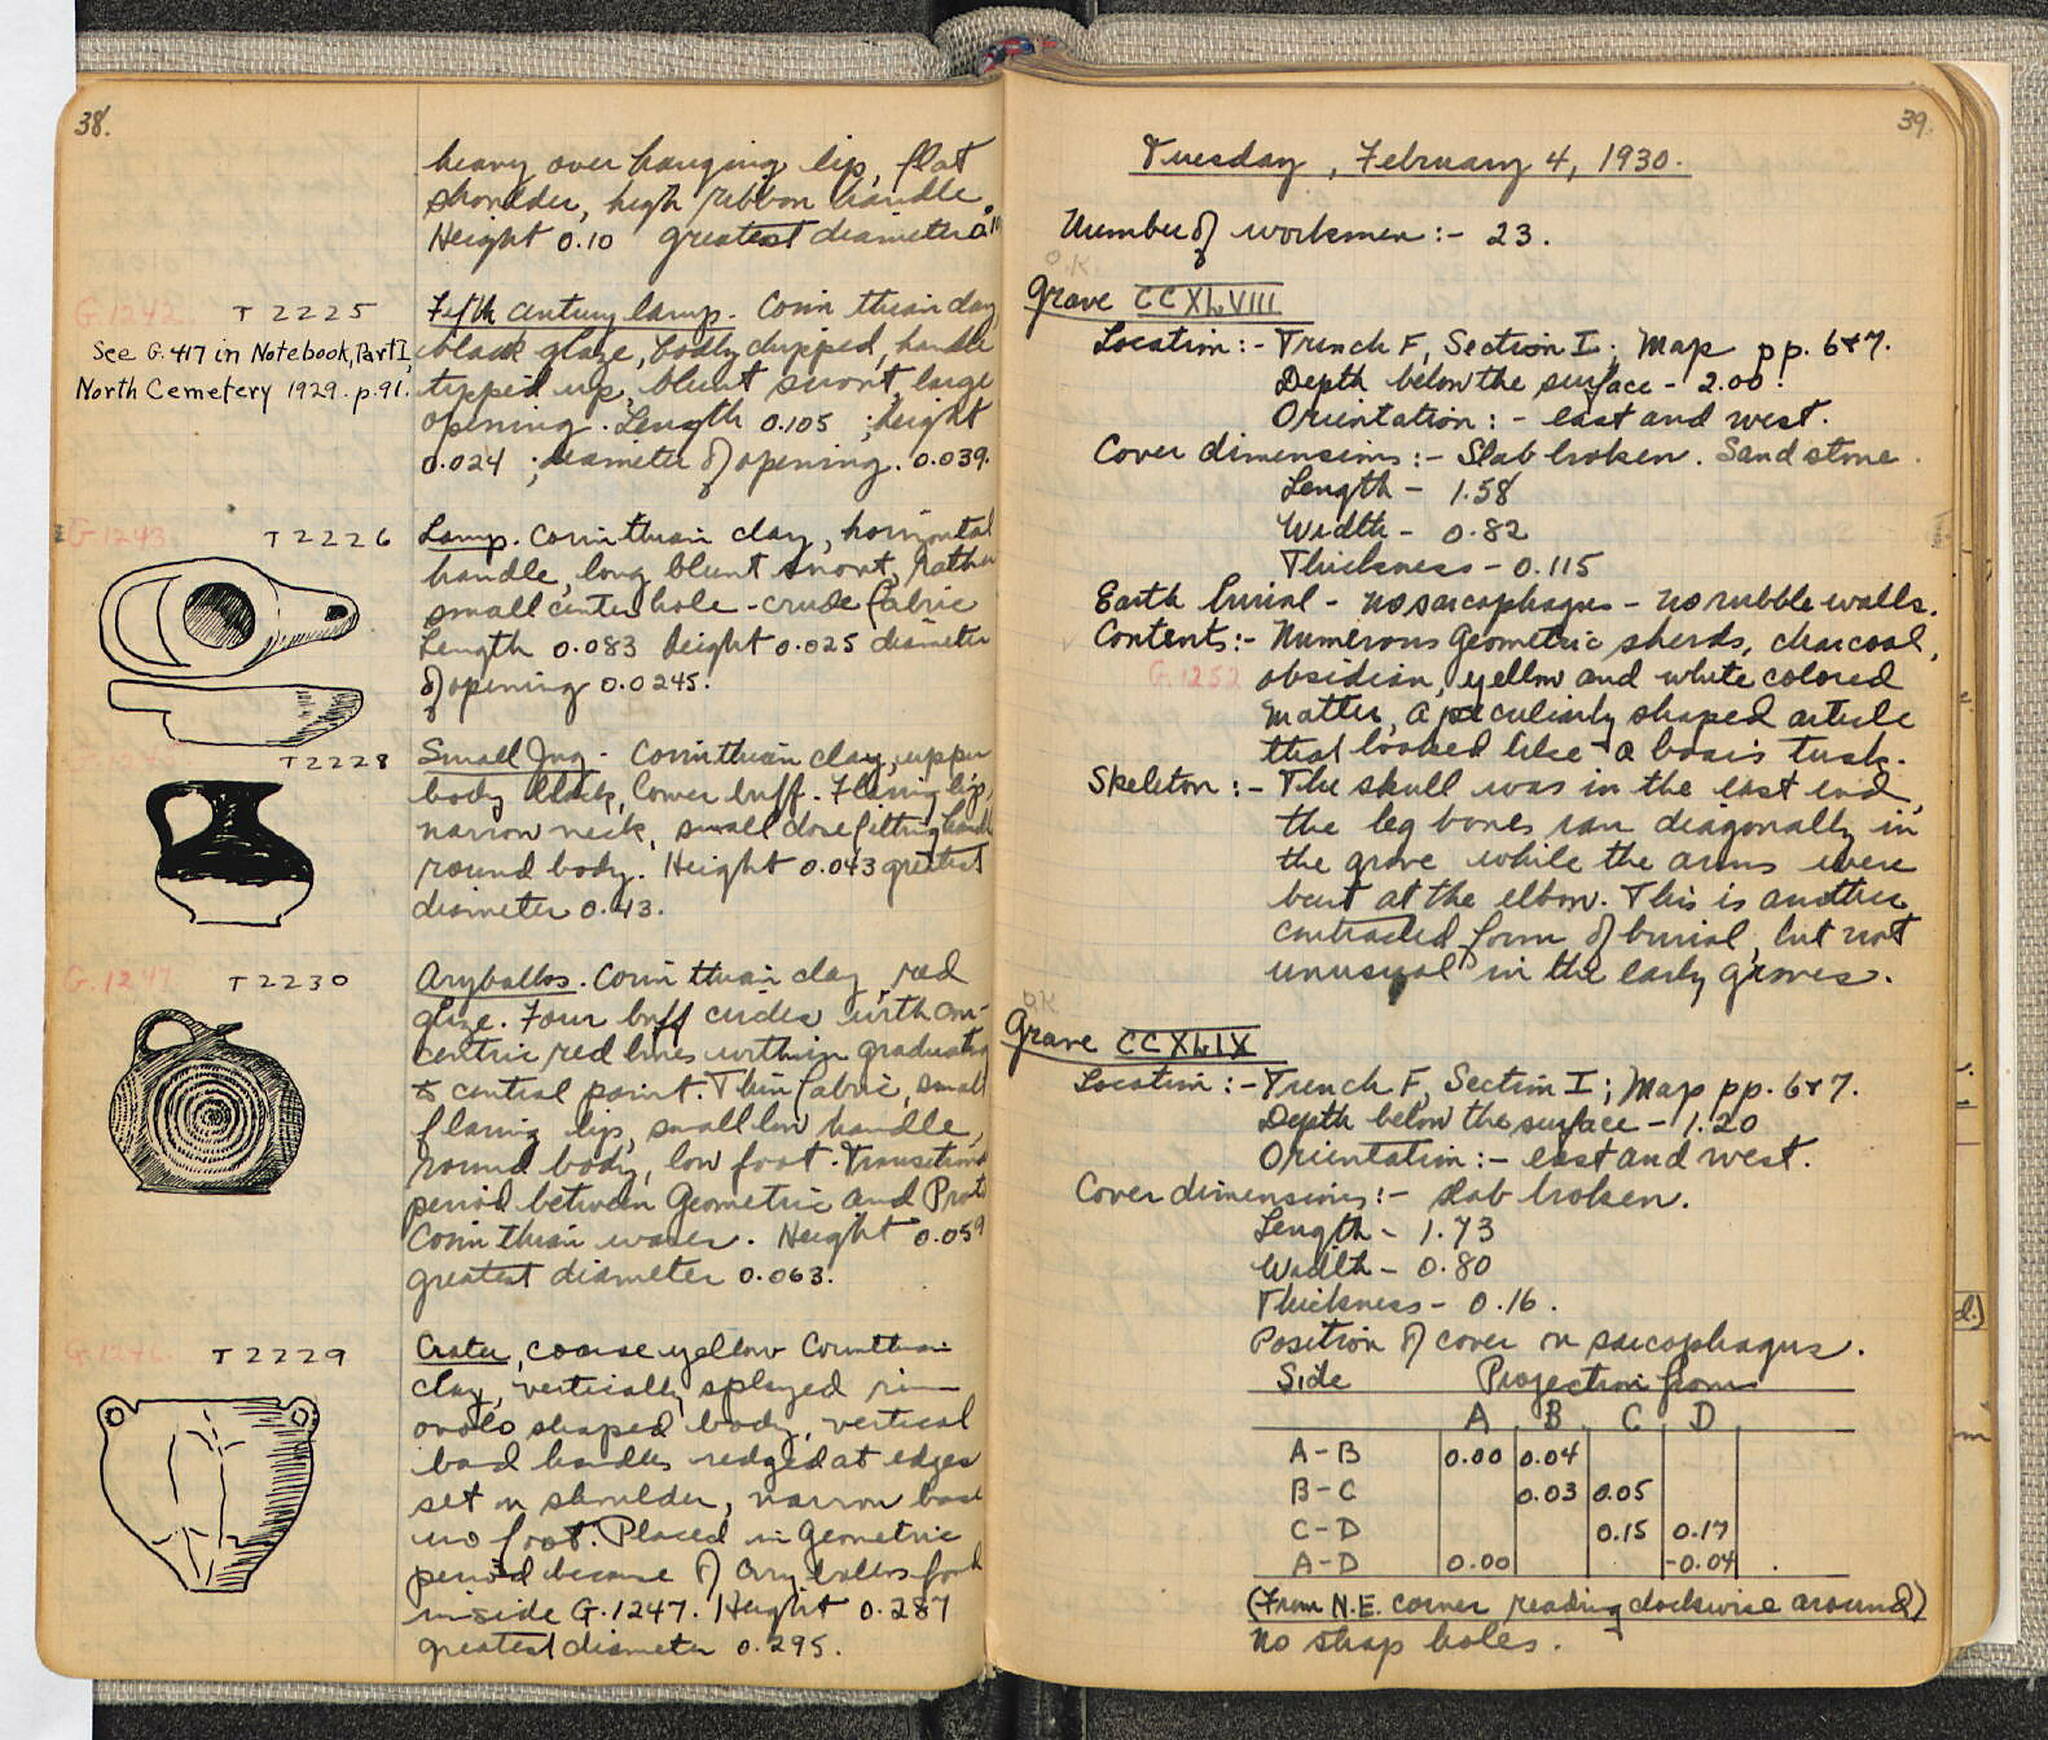 38.
heavy over hanging lip, flat
shoulder, high ribbon handle.
Height 0.10 greatest diameter 0.11
G.1242. T 2225 Fifth century lamp. Corinthian clay,
See G.417 in Notebook, Part I, black glaze, badly chipped, handle
North Cemetery 1929. p.91. tipped up, blunt snout, large
opening. Length 0.105 ; height
0.024 ; diameter of opening. 0.039.
G.1243 T 2226 Lamp. Corinthian clay, horizontal
handle, long blunt snout, rather
small center hole - crude fabric
Length 0.083 height 0.025 diameter
of opening 0.0245.
T 2228 Small Jug - Corinthian clay, upper
body black, lower buff. Flaring lip,
narrow neck, small close fitting handle
round body. Height 0.043 greatest
diameter 0.43.
G.1247 T 2230 Aryballos. Corinthian clay, red
glaze. Four buff circles with con-
centric red lines within graduating
to central point. Thin fabric, small
flaring lip, small low handle,
round body, low foot. Transition
period between Geometric and Proto
Corinthian wares. Height 0.059
greatest diameter 0.063.
G.1246. T 2229 Crater, coarse yellow Corinthian
clay, vertically splayed rim
ovolo shaped body, vertical
band handles ridged at edges
set on shoulder, narrow base
no foot. Placed in Geometric
period because of Aryballos found
inside G.1247. Height 0.287
greatest diameter 0.295.
39.
Tuesday, February 4, 1930.
Number of workmen :- 23.
O.K.
Grave CCXLVIII
Location :- Trench F, Section I; Map pp. 6+7.
Depth below the surface - 2.00.
Orientation :- east and west.
Cover dimensions :- Slab broken. Sandstone.
Length - 1.58
Width - 0.82
Thickness - 0.115
Earth burial - no sarcophagus - no rubble walls.
Contents :- Numerous Geometric sherds, charcoal,
G.1252 obsidian, yellow and white colored
matter, a peculiarly shaped article
that looked like a boar's tusk.
Skeleton :- The skull was in the east end,
the leg bones ran diagonally in
the grave while the arms were
bent at the elbow. This is another
contracted form of burial, but not
unusual in the early graves.
OK
Grave CCXLIX
Location :- Trench F, Section I; Map pp. 6+7.
Depth below the surface - 1.20
Orientation :- east and west.
Cover dimensions :- slab broken.
Length - 1.73
Width - 0.80
Thickness - 0.16.
Position of cover on sarcophagus.
Side Projection from
A B C D
A-B 0.00 0.04
B-C 0.03 0.05
C-D 0.15 0.17
A-D 0.00 -0.04
(From N.E. corner reading clockwise around)
No strap holes.